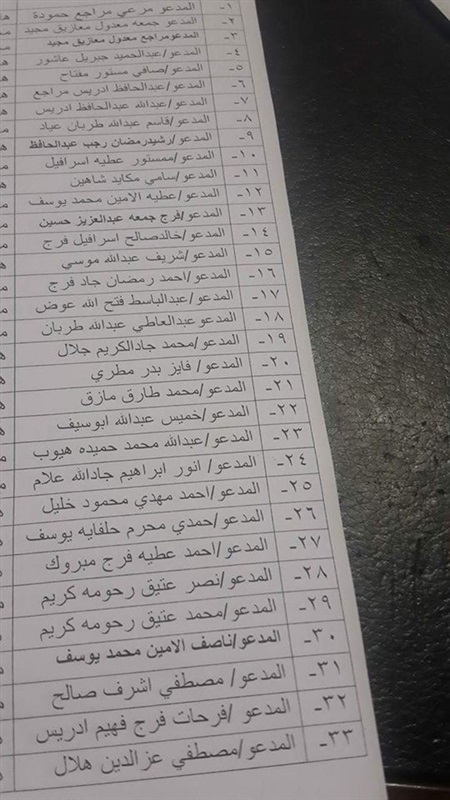 ١- المدعو مرعي مراجع حمودة
٢- المدعو جمعه معدول معازيق مجيد
٣- المدعومراجع معدول معازيق مجيد
٤- المدعو/عبدالحميد جبريل عاشور
٥- المدعو/صافي مستور مفتاح
٦- المدعو/عبدالحافظ ادريس مراجع
٧- المدعو/عبدالله عبدالحافظ ادريس
٨- المدعو/قاسم عبدالله طربان عياد
٩- المدعو/رشيدرمضان رجب عبدالحافظ
١٠- المدعو/ممستور عطيه اسرافيل
١١- المدعو/سامي مكايد شاهين
١٢- المدعو/عطيه الامين محمد يوسف
١٣- المدعو/فرج جمعه عبدالعزيز حسين
١٤- المدعو/خالدصالح اسرافيل فرج
١٥- المدعو/شريف عبدالله موسي
١٦- المدعو/احمد رمضان جاد فرج
١٧- المدعو/عبدالباسط فتح الله عوض
١٨- المدعو عبدالعاطي عبدالله طربان
١٩- المدعو/محمد جادالكريم جلال
٢٠- المدعو/ فايز بدر مطري
٢١- المدعو/محمد طارق مازق
٢٢- المدعو/خميس عبدالله ابوسيف
٢٣- المدعو/عبدالله محمد حميده هيوب
٢٤- المدعو/ انور ابراهيم جادالله علام
٢٥- المدعو/احمد مهدي محمود خليل
٢٦- المدعو/حمدي محرم حلفايه يوسف
٢٧- المدعو/احمد عطيه فرج مبروك
٢٨- المدعو/نصر عتيق رحومه كريم
٢٩- المدعو/محمد عتيق رحومه كريم
٣٠- المدعو/ناصف الامين محمد يوسف
٣١- المدعو/ مصطفي اشرف صالح
٣٢- المدعو /فرحات فرج فهيم ادريس
٣٣- المدعو/مصطفي عزالدين هلال